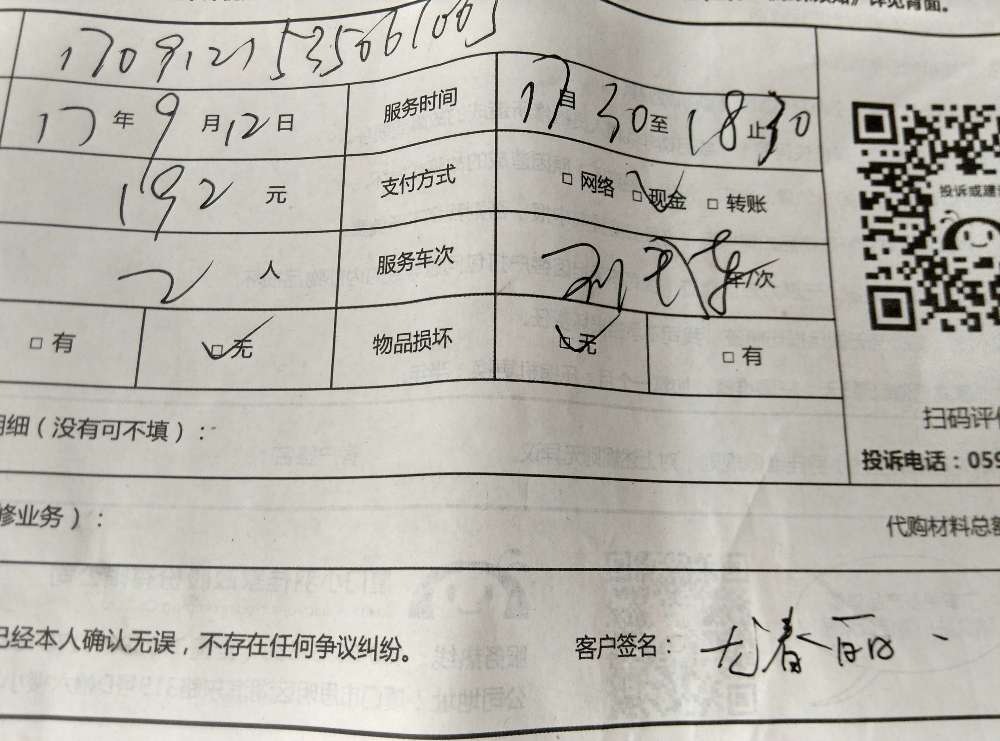 详见背面。
17091215350661003
17年9月12日 服务时间 17自30至18止30
192元 支付方式 □ 网络 □现金 □ 转账
投诉或建
2人 服务车次 车/次
□ 有 □无 物品损坏 □无 □ 有
明细（没有可不填）：
扫码评价
投诉电话：059
修业务）：
代购材料总额
已经本人确认无误，不存在任何争议纠纷。 客户签名：